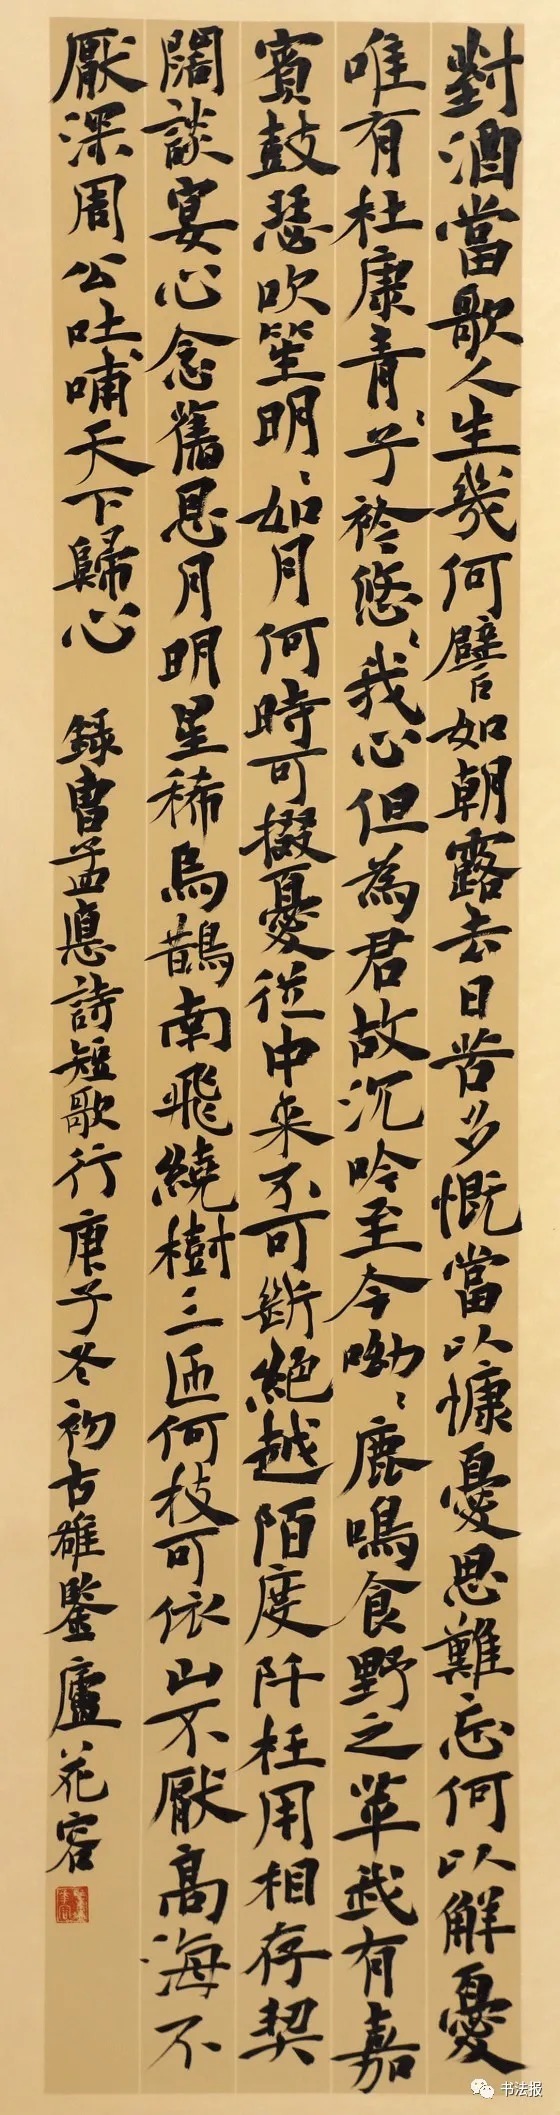 對酒當歌人生幾何譬如朝露去日苦多慨當以慷憂思難忘何以解憂
唯有杜康青〻子衿悠〻我心但為君故沉吟至今呦〻鹿鳴食野之苹我有嘉
賓鼓瑟吹笙明〻如月何時可掇憂從中来不可斷絕越陌度阡枉用相存契
闊談宴心念舊恩月明星稀烏鵲南飛繞樹三匝何枝可依山不厭高海不
厭深周公吐哺天下歸心 錄曹孟惪詩短歌行庚子冬初古雄鑒廬花容
书法报